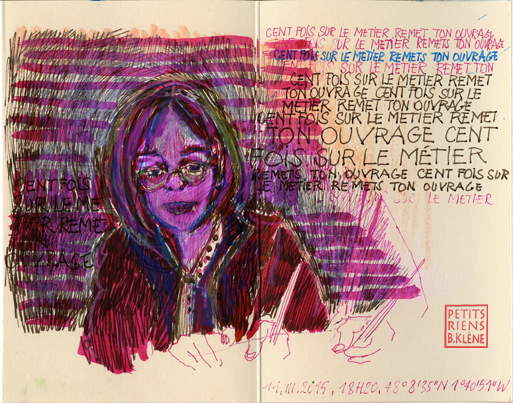 CENT FOIS SUR LE METIER REMET TON OUVRAGE
FOIS SUR LE METIER REMETS TON OUVRAGE
CENT FOIS SUR LE METIER REMETS TON OUVRAGE
SUR LE METIER REMET TON
CENT FOIS SUR LE METIER REMET
TON OUVRAGE CENT FOIS SUR LE
METIER REMET TON OUVRAGE
CENT FOIS SUR LE METIER REMET
TON OUVRAGE CENT
FOIS SUR LE MÉTIER
REMETS TON OUVRAGE CENT FOIS SUR
LE METIER REMETS TON OUVRAGE
SUR LE METIER
CENT FOIS
SUR LE ME
TIER REMET
OUVRAGE
PETITS
RIENS
B.KLÈNE
11.III.2015, 18H20, 48°8'35"N 1°40'51"W